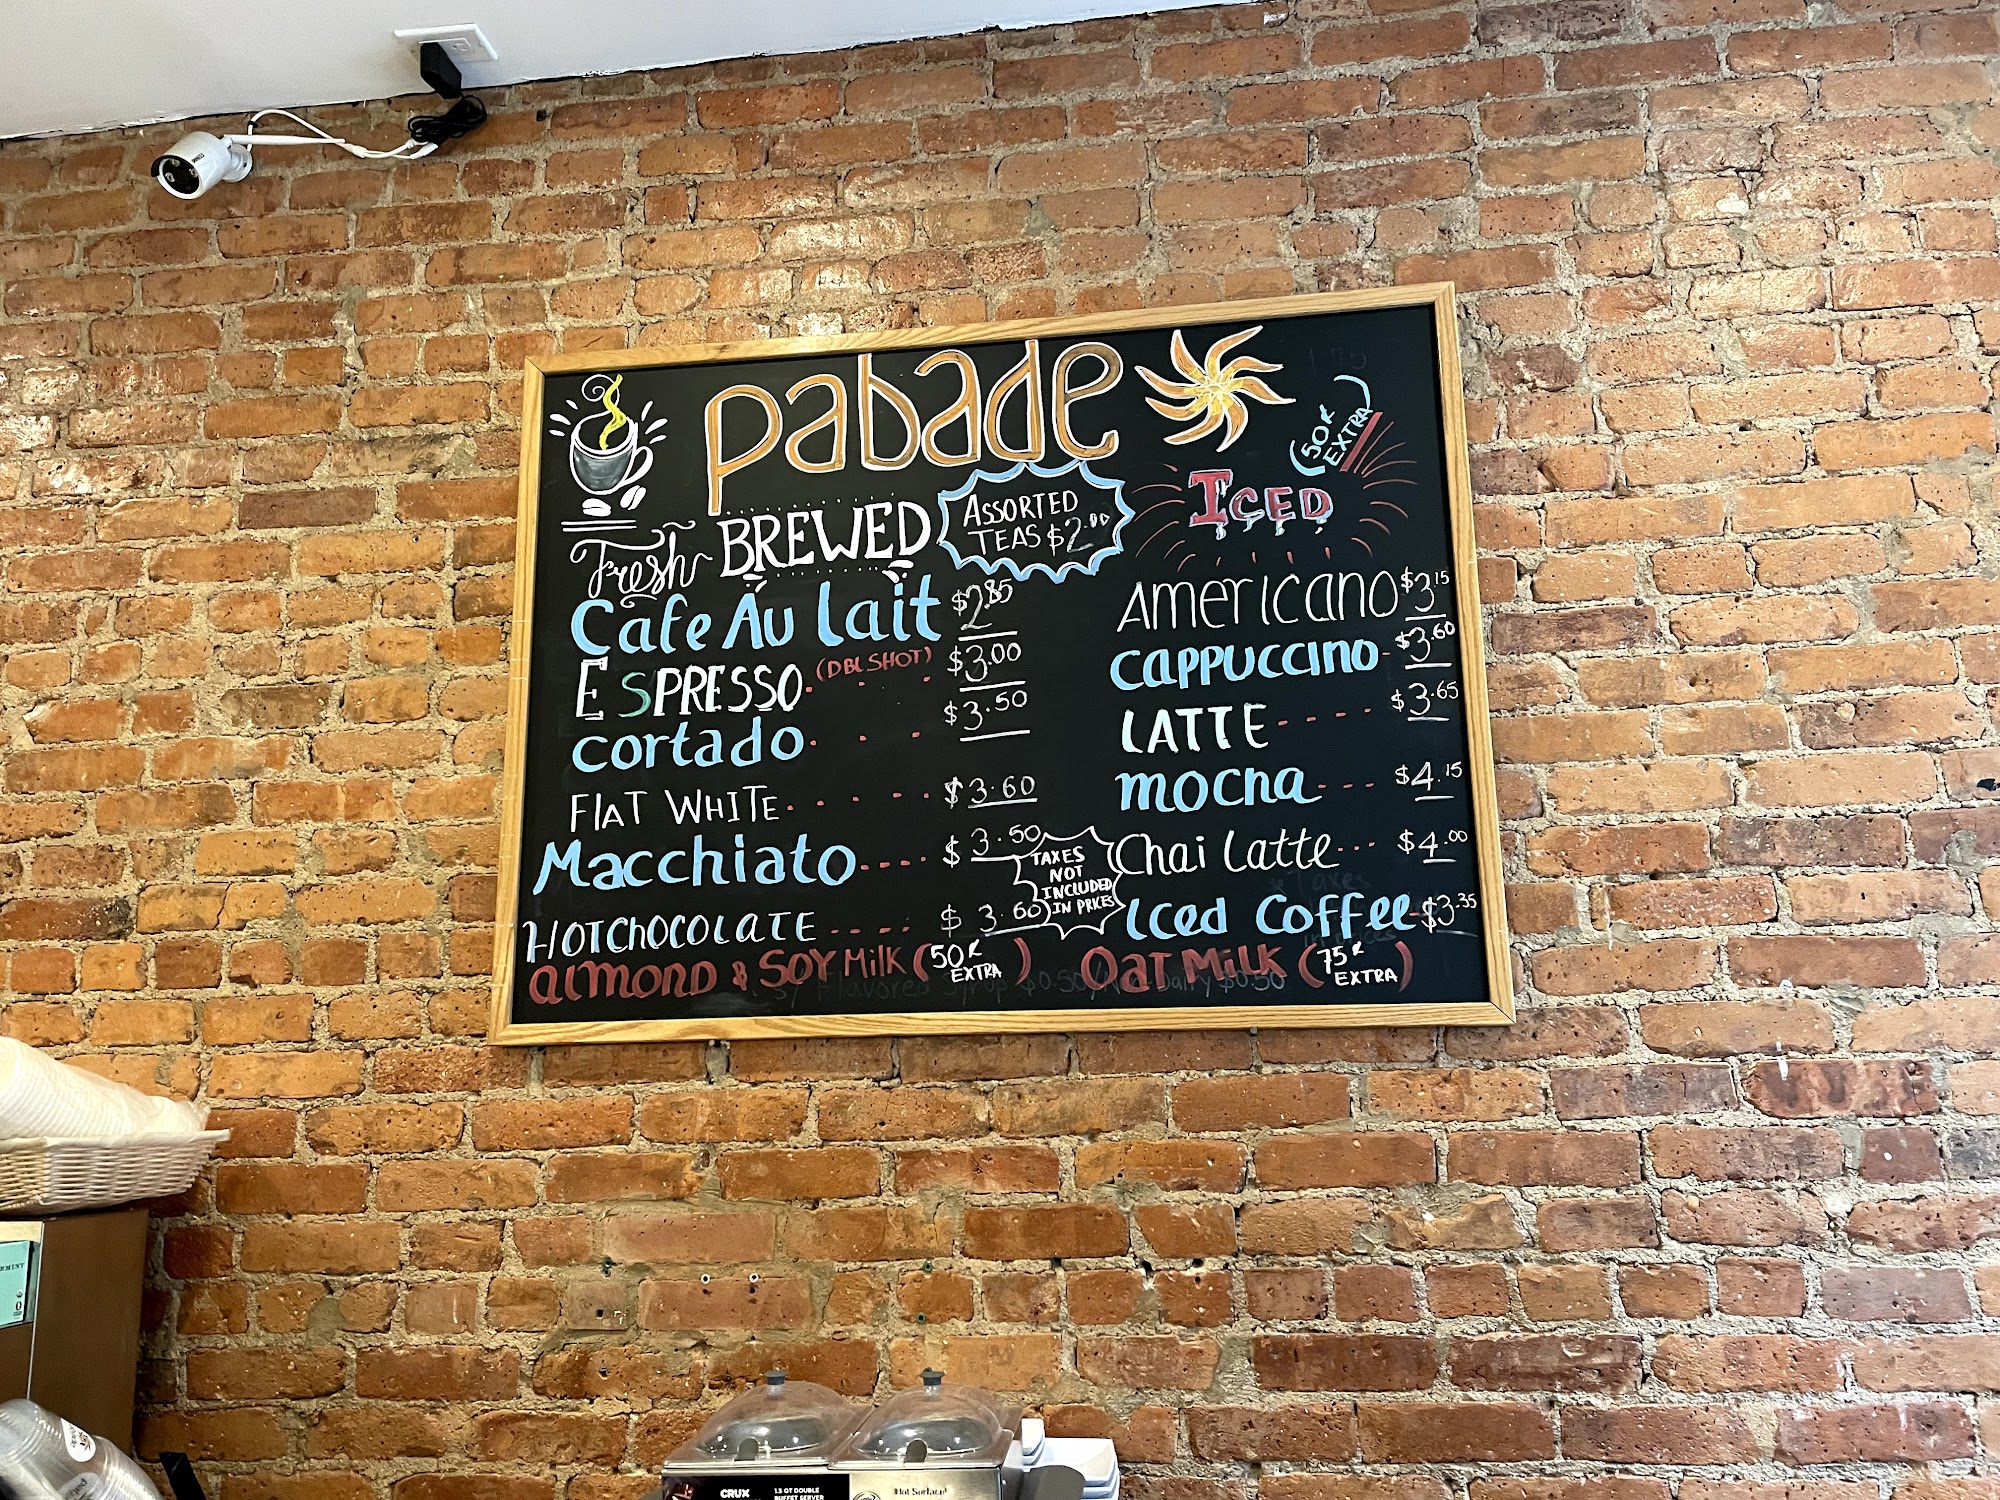 pabade
(50¢ EXTRA)
ICED
Fresh BREWED
ASSORTED
TEAS $2.00
Cafe Au lait $2.85
ESPRESSO (DBL SHOT) $3.00
cortado $3.50
FLAT WHITE $3.60
Macchiato $3.50
HOT CHOCOLATE $3.60
TAXES
NOT
INCLUDED
IN PRICES
AMERICANO $3.15
CAPPUCCINO $3.60
LATTE $3.65
mocha $4.15
Chai Latte $4.00
Iced Coffee $3.35
almond & SOY Milk (50¢ EXTRA)
Oat Milk (75¢ EXTRA)
Flavored Syrup $0.50/Non-Dairy $0.50
CRUX
1.5 QT DOUBLE
BUFFET SERVER
Hot Surface!